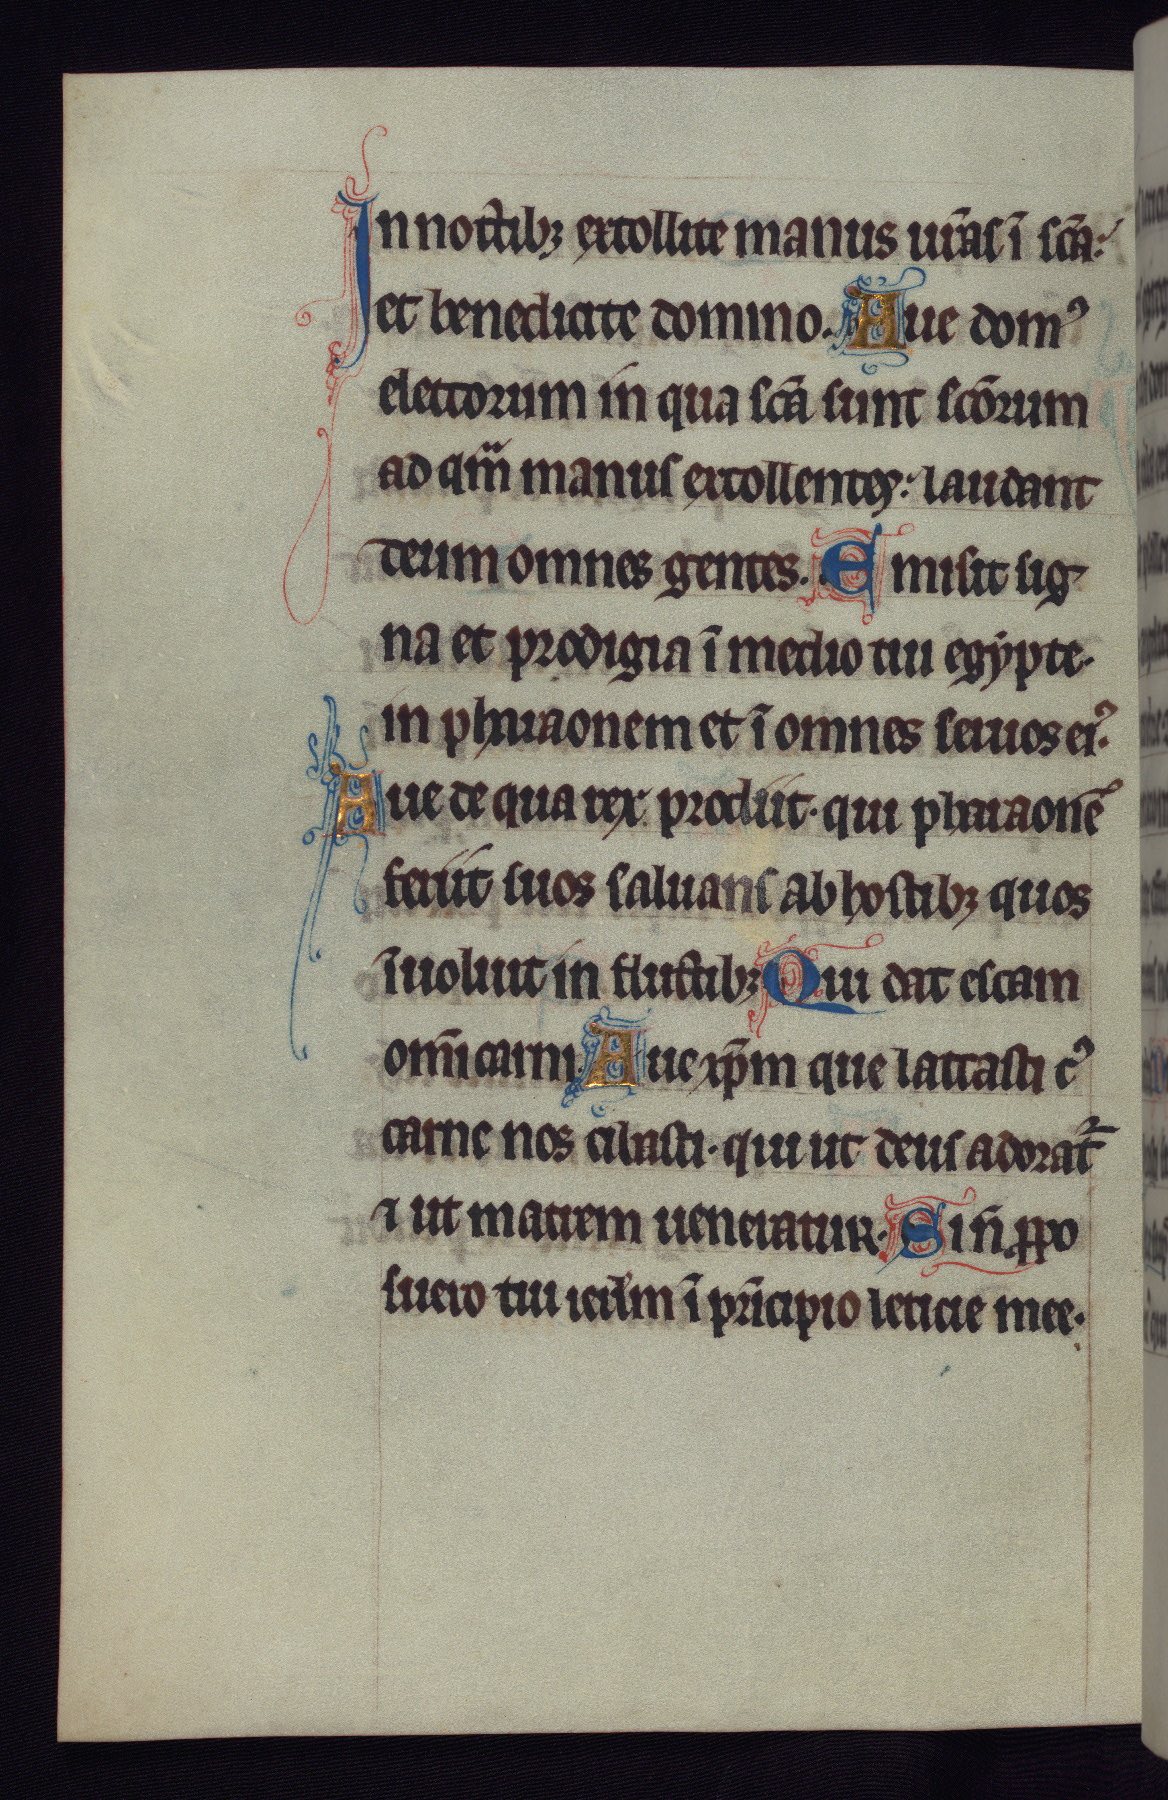 In noctibꝫ extollite manus ur̄as ī sc̄a·
et benedicite domino. Aue domꝰ
electorum in qua sc̄a sunt sc̄orum
ad qm̄ manus extollentes: laudant
deum omnes gentes. Emisit sig
na et prodigia ī medio tui egypte·
in pharaonem et ī omnes seruos eiꝰ·
Aue de qua rex prodiit· qui pharaonē
feriit suos saluans ab hostibꝫ quos
īuoluit in fluctibꝫ Qui dat escam
om̄i carni. Aue xp̄m que lactasti cꝰ
carne nos cibasti· qui ut deus adorat᷑
⁊ ut matrem ueneratur. Si n̄ ꝓpo
suero tui ierl̄m ī pr̄icipio leticie mee·